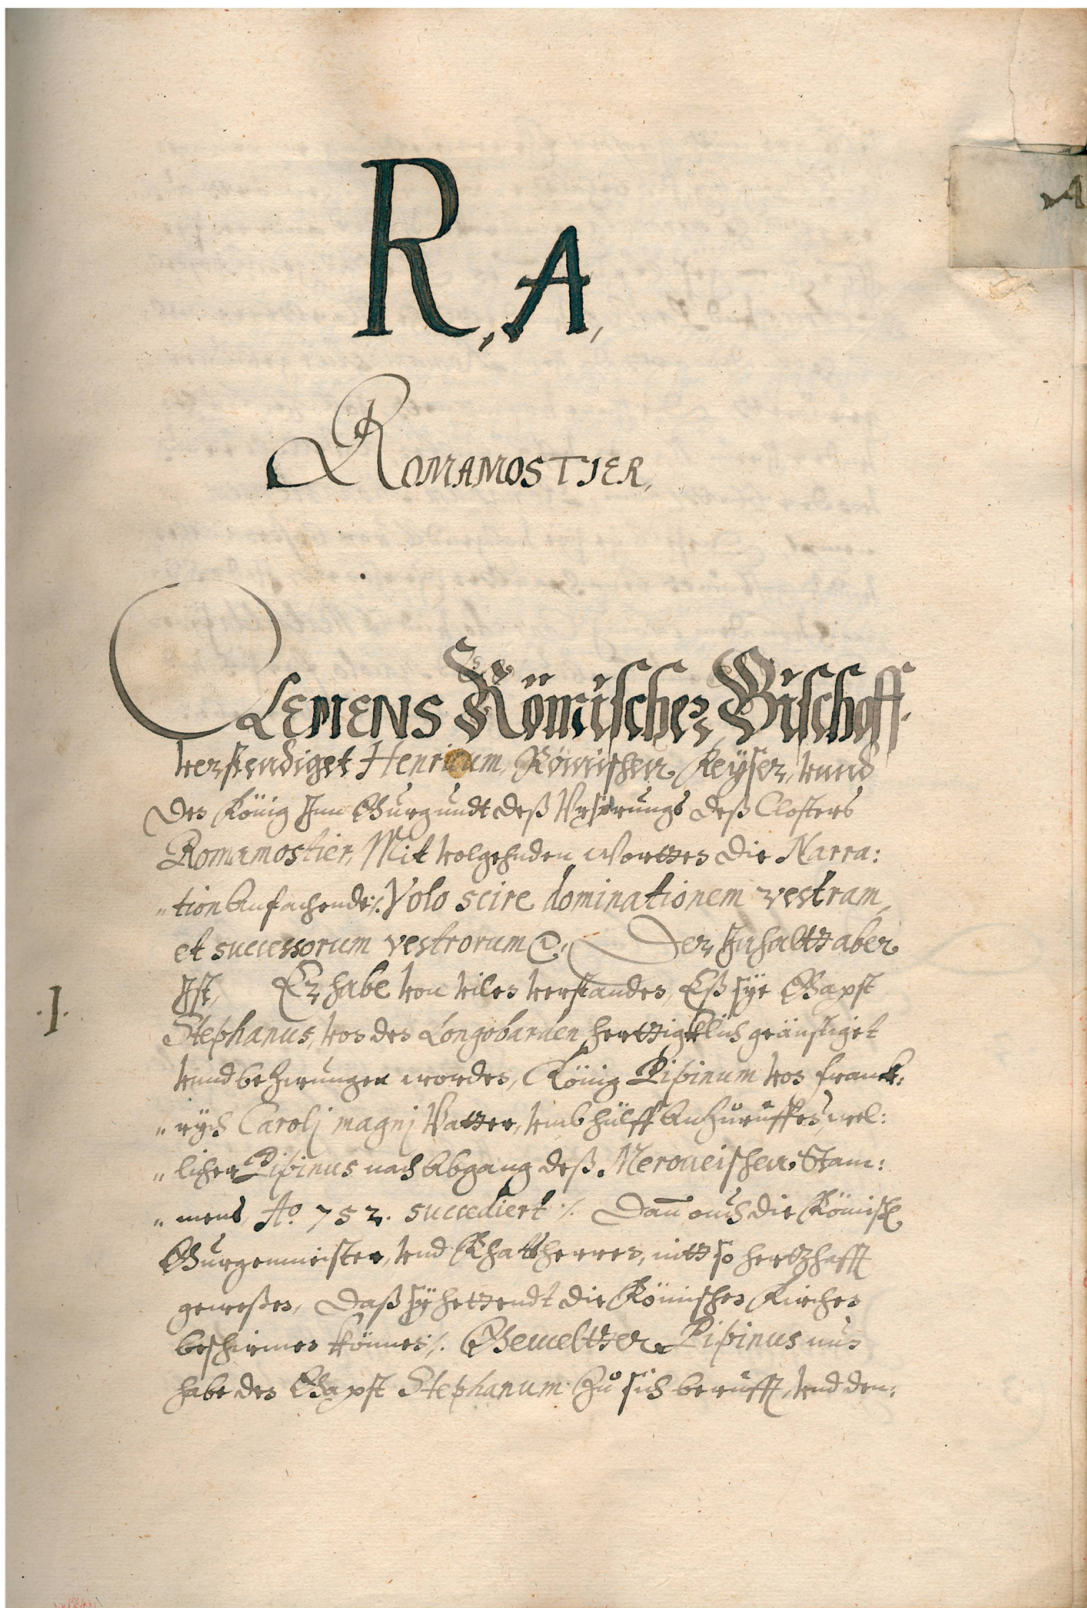 R, A,
A
ROMAMOSTIER,
CLEMENS Römischer Bischoff.
verstendiget Henricum, Römischen Keyser, vnnd
den König Inn Burgundt deß Vrsprungs deß Closters
Romamostier, Mit volgenden wortten die Narra:
„tion Anfachende ⁒. Volo scire dominationem vestram,
et successorum vestrorum &c. Der Inhallt aber
Ist, Er habe von vilen verstanden, Eß sye Bapst
.1.
Stephanus, von den Longobarden herttigklich geänstiget
vnnd bezwungen worden, König Pipinum von Franck:
„rych Carolj magnj Vatter, vmb hülff Anzuruffen, wel:
„licher Pipinus nach Abgang deß Meroueischen Stam:
„mens, Ao. 752. succediert ⁒. Dann ouch die Römisch
Burgermeister, vnd Rhattherren, nitt so hertzhafft
geweßen, Daß sy hettendt die Römischen Kirchen
beschirmen können ⁒. Gemeltter Pipinus nun
habe den Bapst Stephanum zu sich berufft, vnd den: